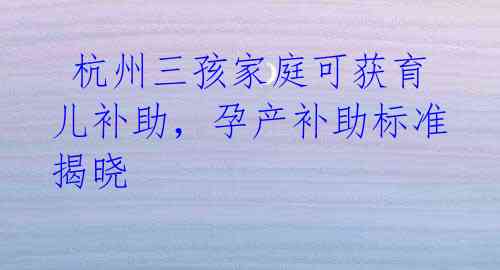 杭州三孩家庭可获育
儿补助，孕产补助标准
揭晓